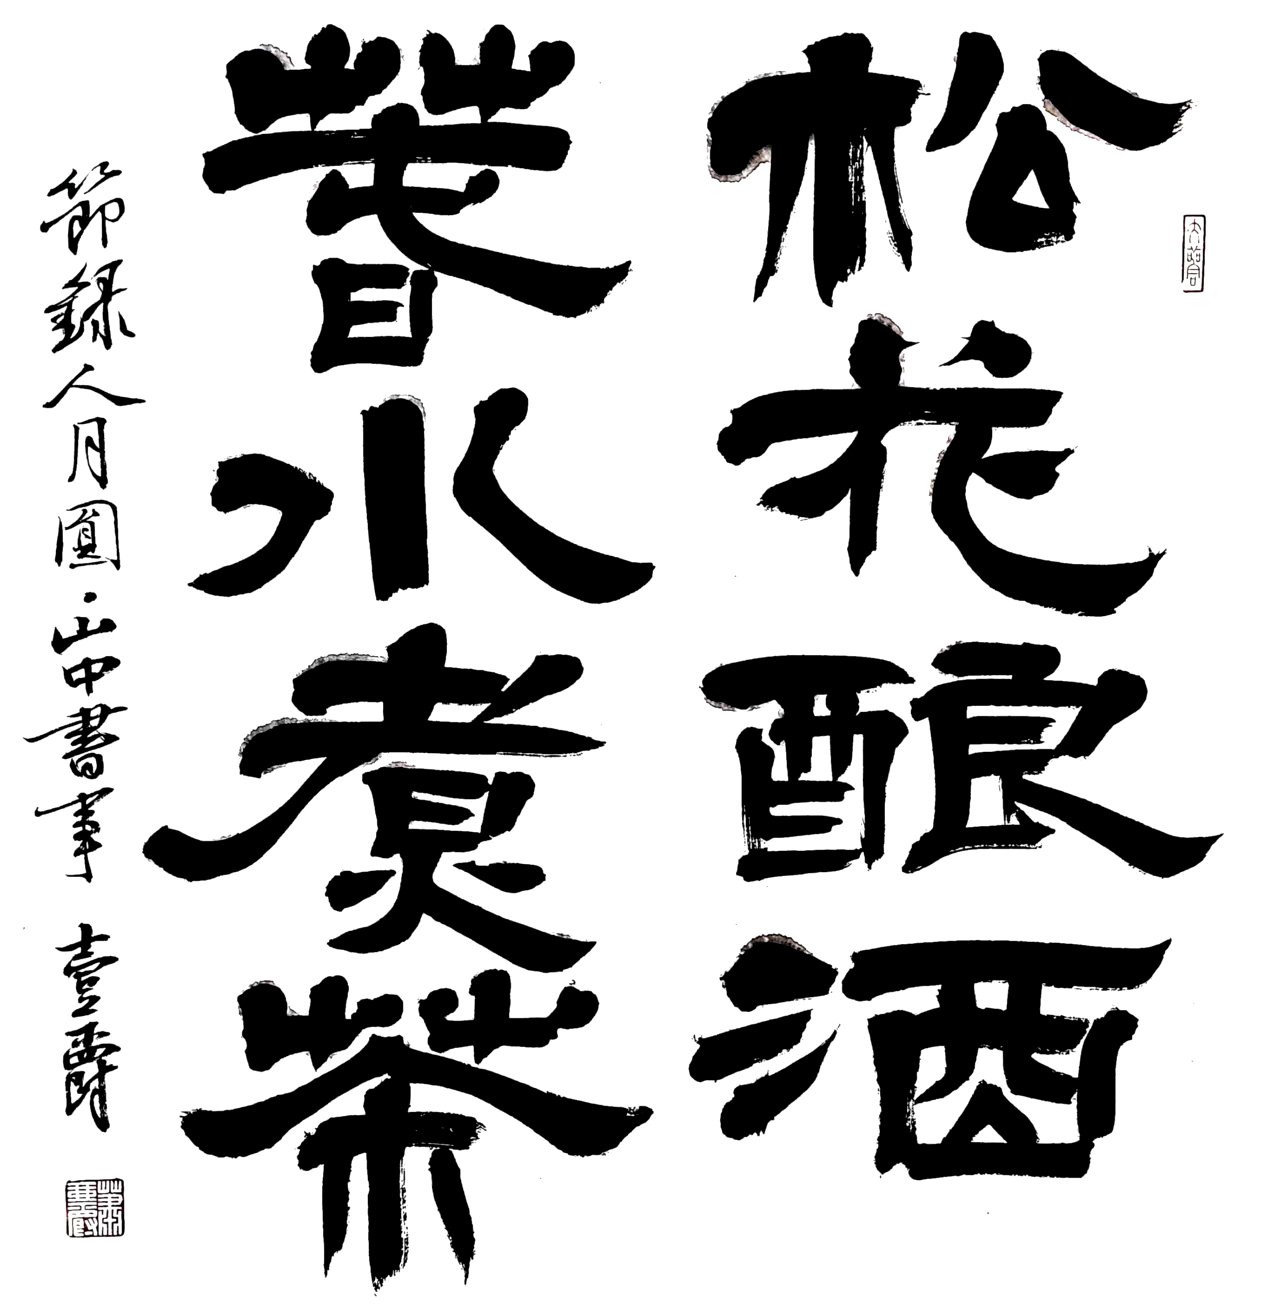 松花酿酒
萅水煮茶
節録人月圓·山中書事 壹爵